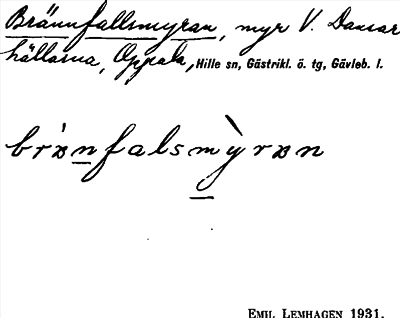 Brännfallsmyran, myr V. Dansar
hällarna, Oppala, Hille sn, Gästrikl. ö. tg, Gävleb. l.
brànfalsmỳrɐn
EMIL LEMHAGEN 1931.